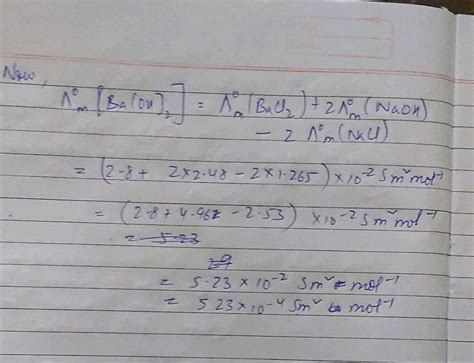 Now,
Λ°m [Ba(OH)2] = Λ°m (BaCl2) + 2Λ°m (NaOH)
- 2 Λ°m (NaCl)
= (2.8 + 2×2.48 - 2×1.265) ×10⁻² Sm² mol⁻¹
= (2.8 + 4.96 - 2.53) ×10⁻² Sm² mol⁻¹
= 5.23
= 5.23 × 10⁻² Sm² mol⁻¹
= 523 × 10⁻⁴ Sm² mol⁻¹